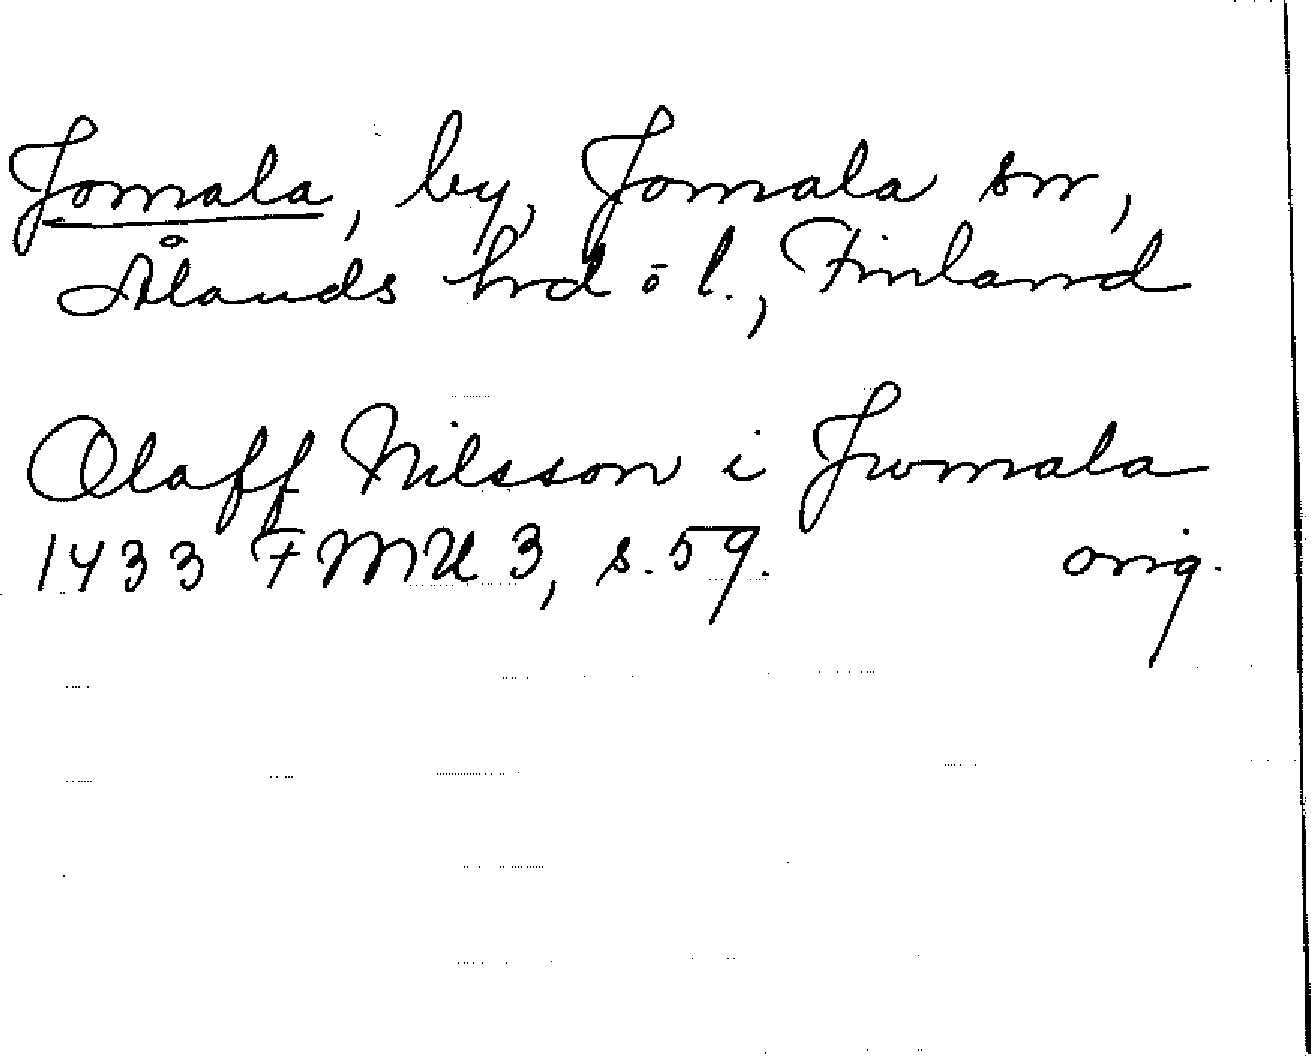 Jomala, by, Jomala sn,
Ålands hd o l., Finland
Olaff Nilsson i Jwmala
1433 FMU 3, s. 59. orig.